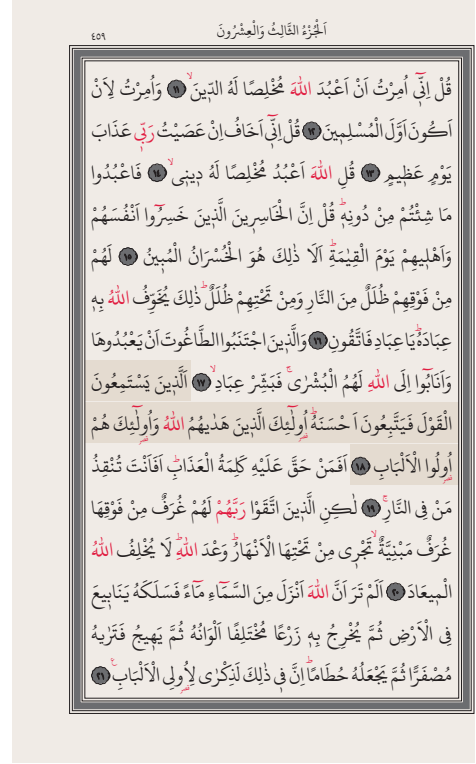 ٤٥٩
اَلْجُزْءُ الثَّالِثُ وَالْعِشْرُونَ
قُلْ اِنّ۪ٓي اُمِرْتُ اَنْ اَعْبُدَ اللّٰهَ مُخْلِصًا لَهُ الدّ۪ينَۙ ﴿١١﴾ وَاُمِرْتُ لِاَنْ
اَكُونَ اَوَّلَ الْمُسْلِم۪ينَ ﴿١٢﴾ قُلْ اِنّ۪ٓي اَخَافُ اِنْ عَصَيْتُ رَبّ۪ي عَذَابَ
يَوْمٍ عَظ۪يمٍ ﴿١٣﴾ قُلِ اللّٰهَ اَعْبُدُ مُخْلِصًا لَهُ د۪ين۪يۙ ﴿١٤﴾ فَاعْبُدُوا
مَا شِئْتُمْ مِنْ دُونِه۪ۜ قُلْ اِنَّ الْخَاسِر۪ينَ الَّذ۪ينَ خَسِرُٓوا اَنْفُسَهُمْ
وَاَهْل۪يهِمْ يَوْمَ الْقِيٰمَةِۜ اَلَا ذٰلِكَ هُوَ الْخُسْرَانُ الْمُب۪ينُ ﴿١٥﴾ لَهُمْ
مِنْ فَوْقِهِمْ ظُلَلٌ مِنَ النَّارِ وَمِنْ تَحْتِهِمْ ظُلَلٌۜ ذٰلِكَ يُخَوِّفُ اللّٰهُ بِه۪
عِبَادَهُۜ يَا عِبَادِ فَاتَّقُونِ ﴿١٦﴾ وَالَّذ۪ينَ اجْتَنَبُوا الطَّاغُوتَ اَنْ يَعْبُدُوهَا
وَاَنَابُٓوا اِلَى اللّٰهِ لَهُمُ الْبُشْرٰىۚ فَبَشِّرْ عِبَادِۙ ﴿١٧﴾ اَلَّذ۪ينَ يَسْتَمِعُونَ
الْقَوْلَ فَيَتَّبِعُونَ اَحْسَنَهُۜ اُو۬لٰٓئِكَ الَّذ۪ينَ هَدٰيهُمُ اللّٰهُ وَاُو۬لٰٓئِكَ هُمْ
اُو۬لُوا الْاَلْبَابِ ﴿١٨﴾ اَفَمَنْ حَقَّ عَلَيْهِ كَلِمَةُ الْعَذَابِۜ اَفَاَنْتَ تُنْقِذُ
مَنْ فِي النَّارِۚ ﴿١٩﴾ لٰكِنِ الَّذ۪ينَ اتَّقَوْا رَبَّهُمْ لَهُمْ غُرَفٌ مِنْ فَوْقِهَا
غُرَفٌ مَبْنِيَّةٌۙ تَجْر۪ي مِنْ تَحْتِهَا الْاَنْهَارُۜ وَعْدَ اللّٰهِۜ لَا يُخْلِفُ اللّٰهُ
الْم۪يعَادَ ﴿٢٠﴾ اَلَمْ تَرَ اَنَّ اللّٰهَ اَنْزَلَ مِنَ السَّمَٓاءِ مَٓاءً فَسَلَكَهُ يَنَاب۪يعَ
فِي الْاَرْضِ ثُمَّ يُخْرِجُ بِه۪ زَرْعًا مُخْتَلِفًا اَلْوَانُهُ ثُمَّ يَه۪يجُ فَتَرٰيهُ
مُصْفَرًّا ثُمَّ يَجْعَلُهُ حُطَامًاۜ اِنَّ ف۪ي ذٰلِكَ لَذِكْرٰى لِاُو۬لِي الْاَلْبَابِ۟ ﴿٢١﴾